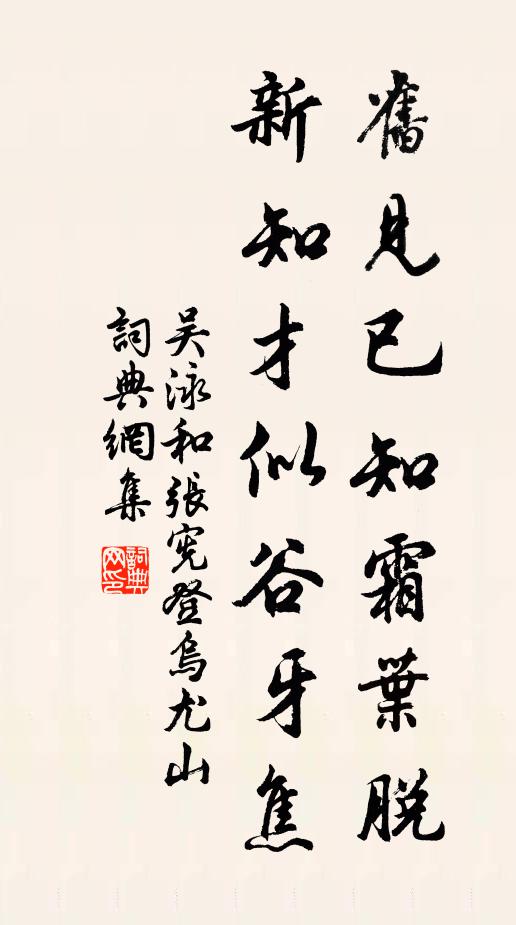 舊見已知霜葉脫
新知才似谷牙焦
吴泳和張憲登烏尤山
詞典網集
詞典网印